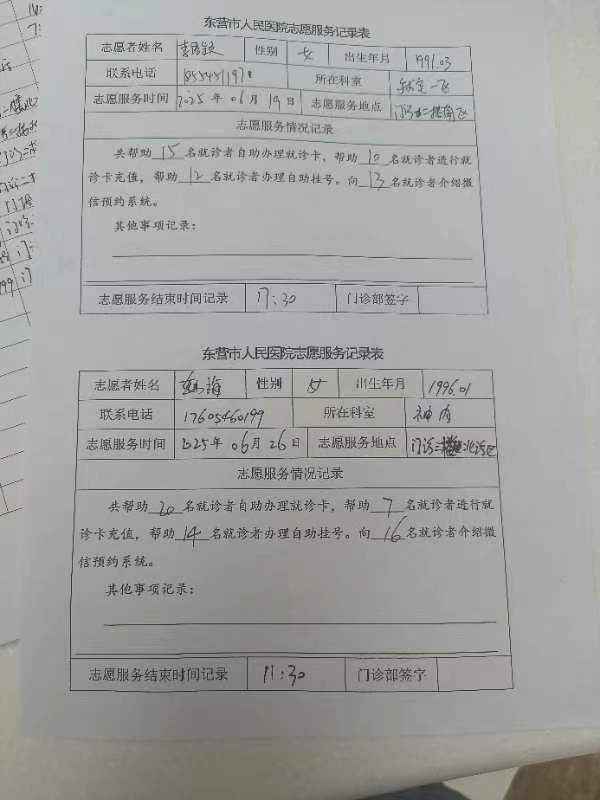 东营市人民医院志愿服务记录表
志愿者姓名 性别 女 出生年月 1991.03
联系电话 所在科室
志愿服务时间 2025年06月19日 志愿服务地点
志愿服务情况记录
共帮助15名就诊者自助办理就诊卡，帮助10名就诊者进行就
诊卡充值，帮助12名就诊者办理自助挂号。向13名就诊者介绍微
信预约系统。
其他事项记录：
志愿服务结束时间记录 17:30 门诊部签字
东营市人民医院志愿服务记录表
志愿者姓名 海 性别 女 出生年月 1996.01
联系电话 17605460199 所在科室 神内
志愿服务时间 2025年06月26日 志愿服务地点 门诊
志愿服务情况记录
共帮助20名就诊者自助办理就诊卡，帮助7名就诊者进行就
诊卡充值，帮助14名就诊者办理自助挂号。向16名就诊者介绍微
信预约系统。
其他事项记录：
志愿服务结束时间记录 11:30 门诊部签字